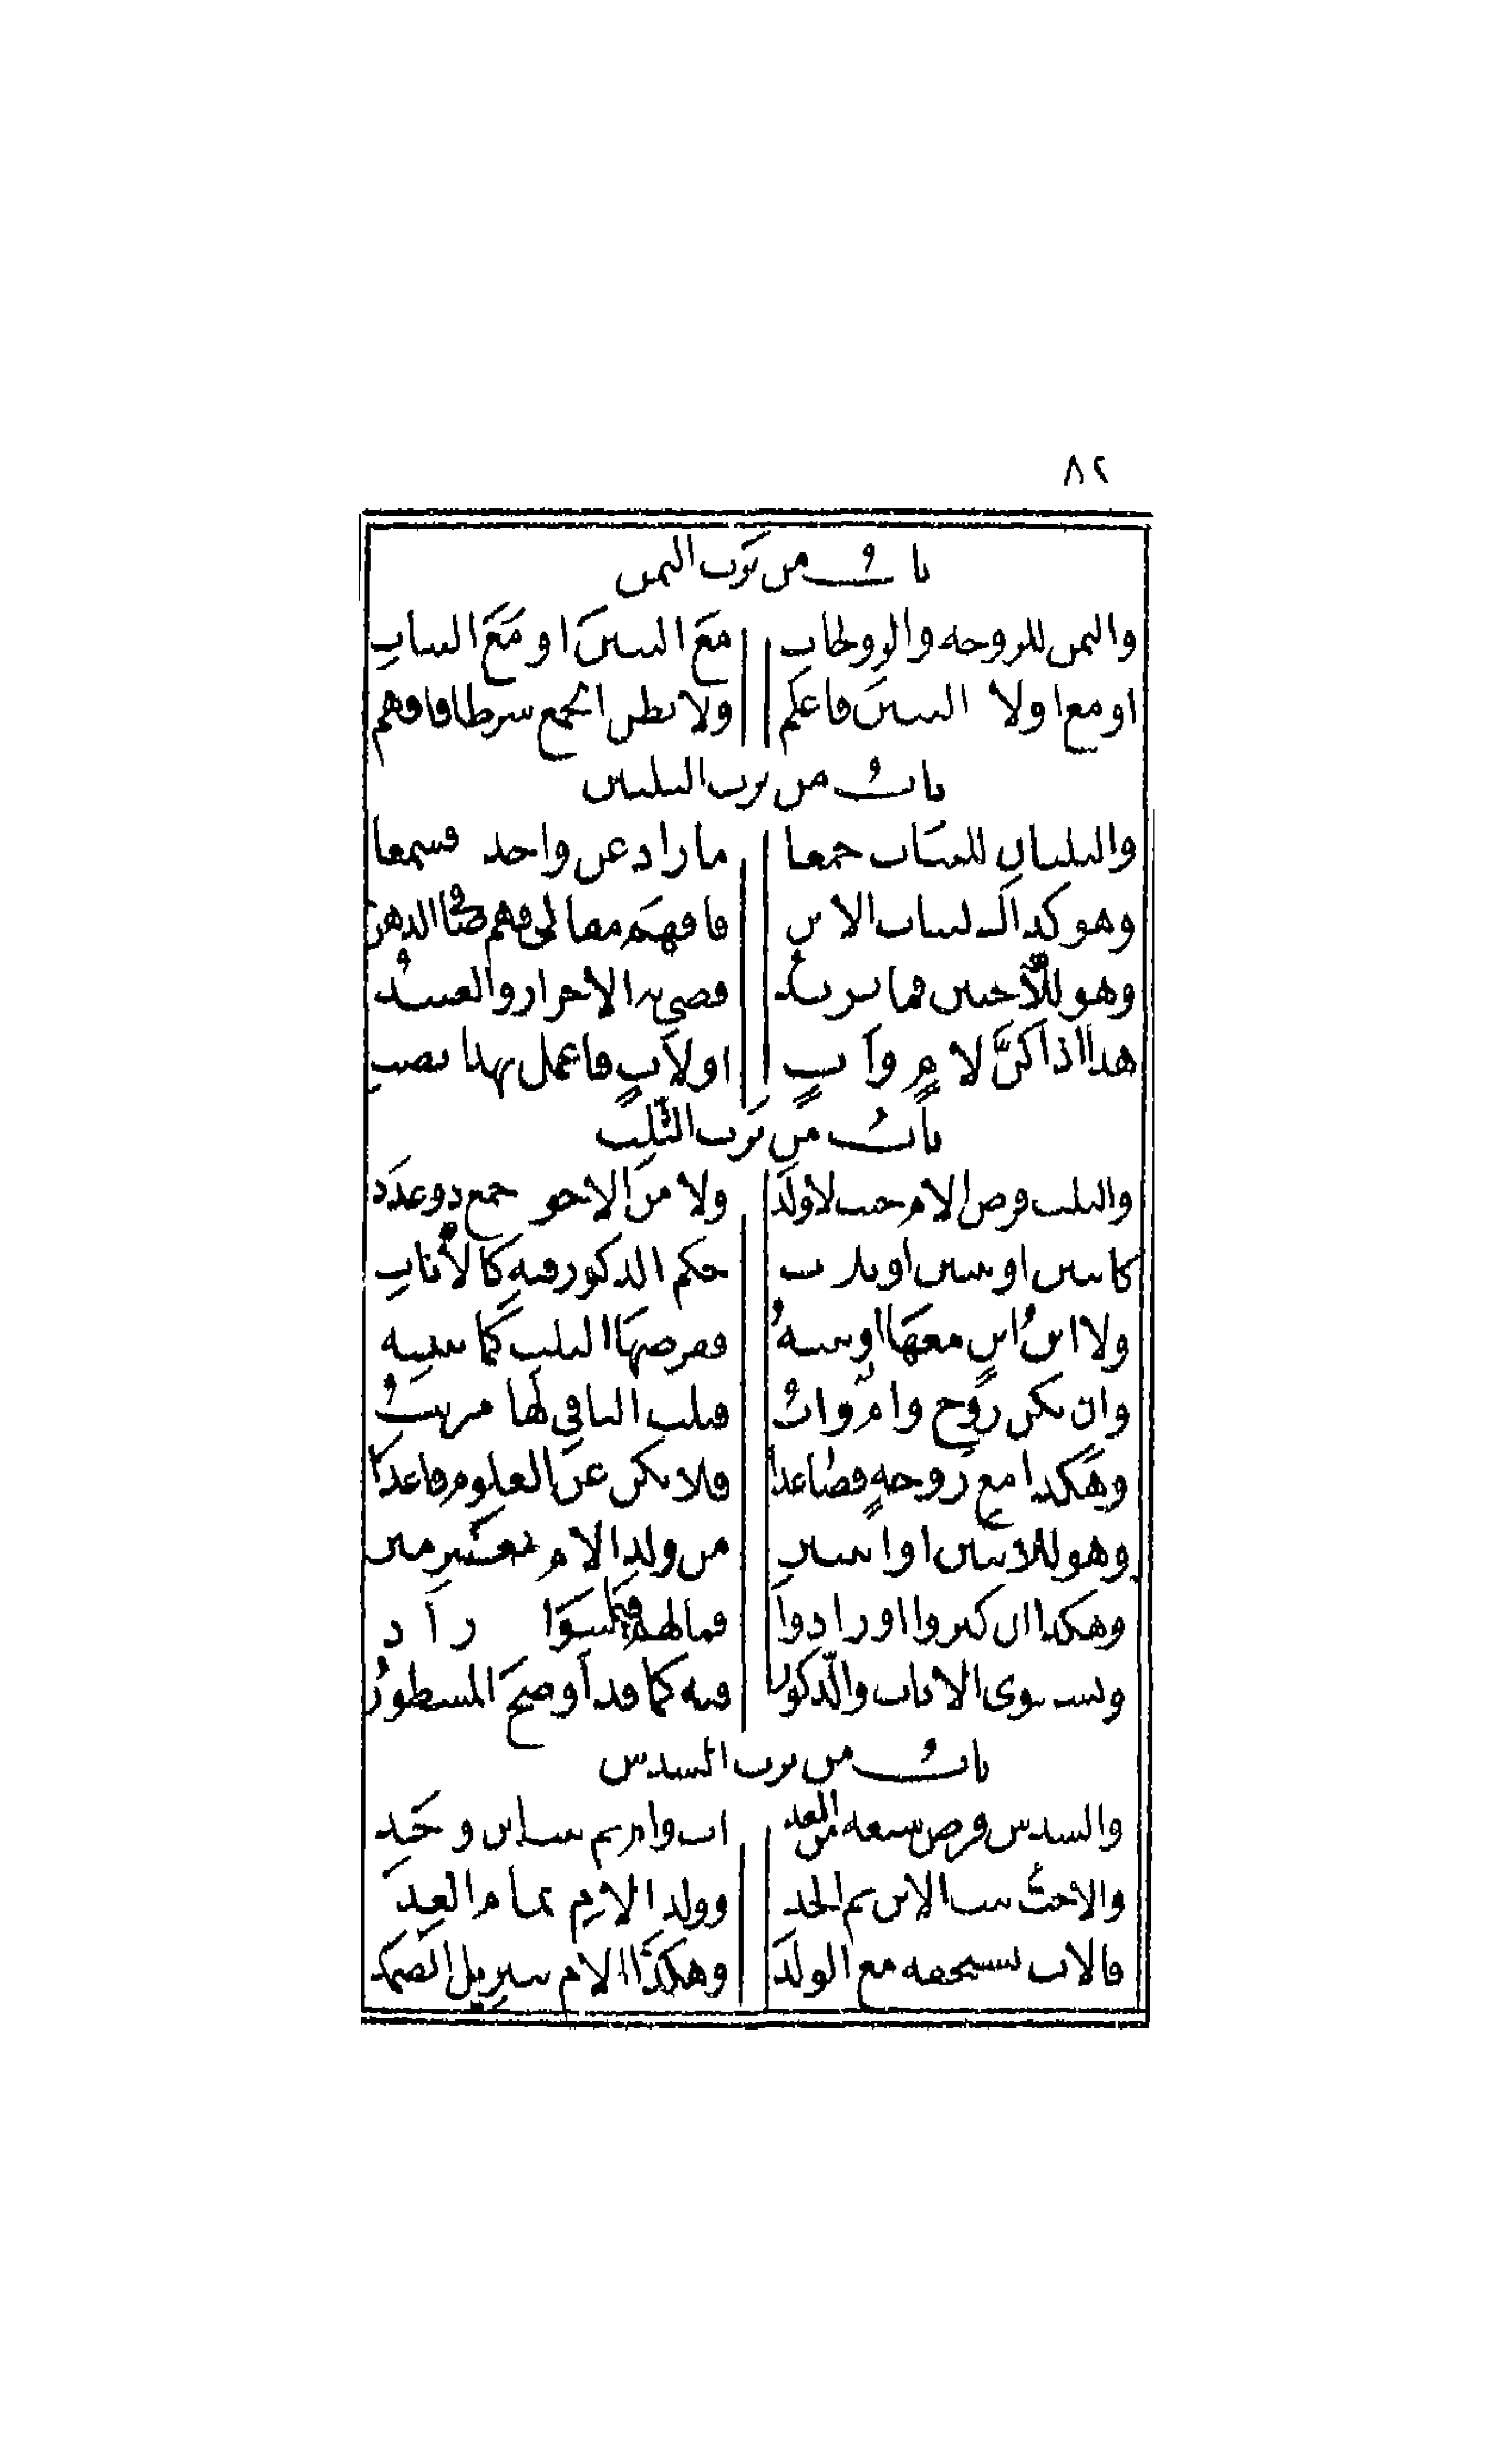 ٨٢
باب من يرث الثمن
والثمن للزوجة والزوجات مع البنين او مع البنات
او مع اولاد البنين فاعلم ولا تظن الجمع شرطا فافهم
باب من يرث الثلثين
والثلثان للبنات جمعا ما زاد عن واحدة فسمعا
وهو كذاك لبنات الابن فافهم مقالي فهم صافي الذهن
وهو للأختين فما يزيد قضى به الاحرار والعبيد
هذا اذا كنّ لام وأب او لأب فاعمل بهذا تصب
باب من يرث الثلث
والثلث فرض الام حيث لا ولد ولا من الاخوة جمع ذو عدد
كاثنين او ثنتين او ثلاث حكم الذكور فيه كالأناث
ولا ابن ابن معها او بنته ففرضها الثلث كما بينته
وان يكن زوج وام واب فثلث الباقي لها مرتب
وهكذا مع زوجة فصاعدا فلا تكن عن العلوم قاعدا
وهو للاثنين او اثنتين من ولد الام بغير مين
وهكذا ان كثروا او زادوا فما لهم فيما سواه زاد
ويستوي الاناث والذكور فيه كما قد أوضح المسطور
باب من يرث السدس
والسدس فرض سبعة من العدد اب وام ثم بنت ابن وجد
والاخت بنت الاب ثم الجدة وولد الام تمام العدة
فالاب يستحقه مع الولد وهكذا الام بتنزيل الصمد